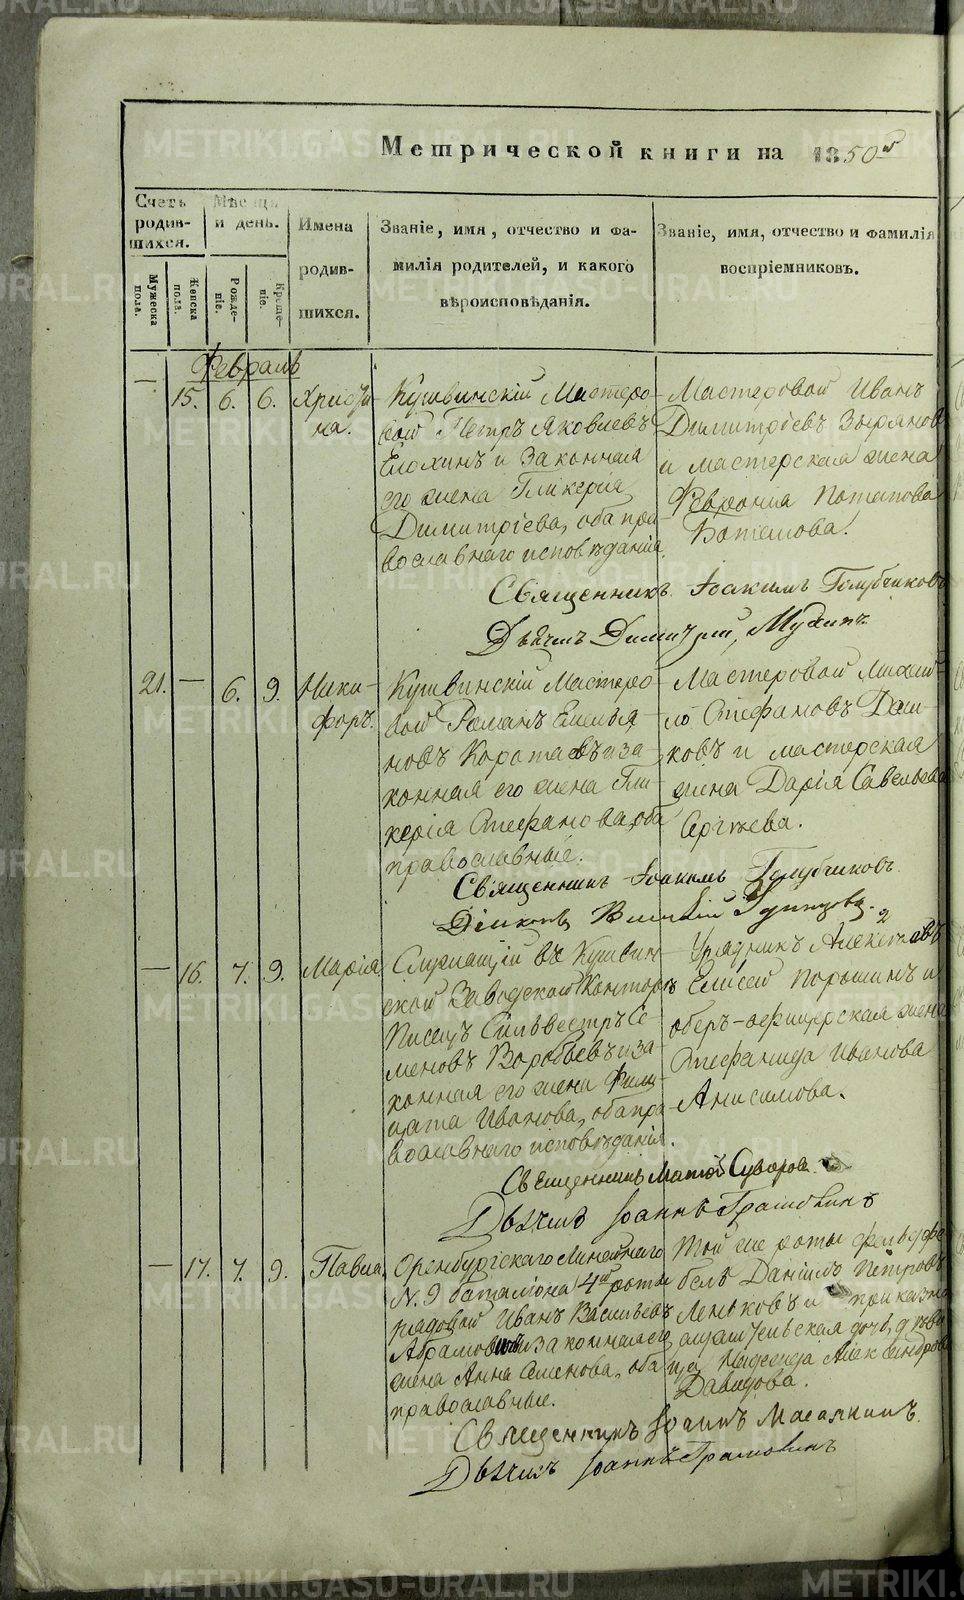 Метрической книги на 1850й
Счетъ родившихся.
Мѣсяцъ и день.
Имена родившихся.
Званіе, имя, отчество и фамилія родителей, и какого вѣроисповѣданія.
Званіе, имя, отчество и фамилія воспріемниковъ.
Мужеска пола.
Женска пола.
Рожденіе.
Крещеніе.
Февраль
— 15. 6. 6. Христина.
Кушвинскій Мастеро-
вой Петръ Яковлевъ
Елохинъ и законная
его жена Гликерия
Димитріева, оба пра-
вославнаго исповѣданія.
Мастеровой Иванъ
Димитріевъ Зырянов
и мастерская жена
Феврониа Потапова
Священникъ Іоакимъ Голубчиковъ
Дьячекъ Димитрий Мухинъ
21. — 6. 9. Ники-
форъ.
Кушвинскій Мастеро-
вой Романъ Емелья-
новъ Коротаевъ и за-
конная его жена Гли-
керія Стефанова, оба
православные.
Мастеровой Михаи-
ло Стефановъ
и мастерская
жена Дарія Савельева
Сергѣева.
Священникъ Іоакимъ Голубчиковъ
Діаконъ Василій Удинцовъ.
— 16. 7. 9. Марія
Служащій въ Кушвин-
ской Заводской Конторѣ
Писецъ Сильвестръ Се-
меновъ Воробьевъ и за-
конная его жена Фили-
цата Иванова, оба пра-
вославнаго исповѣданія.
Урядникъ
Елисей Порошинъ и
оберъ-офицерская жена
Стефанида Иванова
Анисимова.
Священникъ Матѳей Суворовъ.
Дьячекъ Іоаннъ Грамолинъ
— 17. 7. 9. Павла
Оренбургскаго Линейнаго
N. 9 баталіона 4й роты
рядовой Иванъ Васильевъ
и законная его
жена Анна Семенова, оба
православные.
Той же роты фельдфе-
бель Данилъ Петровъ
Леньковъ и приказно-
служительская дочь, дѣви-
ца Надежда Александрова
Давыдова.
Священникъ Іоаннъ
Дьячекъ Іоаннъ Грамолинъ
METRIKI.GASO-URAL.RU